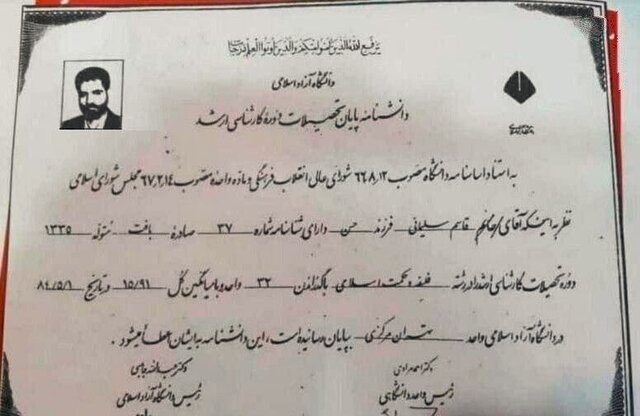 یرفع الله الذین آمنوا منکم والذین اوتوا العلم درجات
دانشگاه آزاد اسلامی
دانشنامه پایان تحصیلات دوره کارشناسی ارشد
به استناد اساسنامه دانشگاه مصوب ۶۶٫۸٫۱۲ شورای عالی انقلاب فرهنگی و ماده واحده مصوب ۶۷٫۲٫۱۴ مجلس شورای اسلامی
نظر به اینکه آقای/خانم قاسم سلیمانی فرزند حسن دارای شناسنامه شماره ۳۷ صادره بافت متولد ۱۳۳۵
دوره تحصیلات کارشناسی ارشد را در رشته فلسفه و حکمت اسلامی با گذراندن ۳۲ واحد و با میانگین کل ۱۵/۹۱ و در تاریخ ۸۴/۵/۱
در دانشگاه آزاد اسلامی واحد تهران مرکزی بپایان رسانیده است، این دانشنامه به ایشان اعطا میشود.
دکتر عبدالله جاسبی
رئیس دانشگاه آزاد اسلامی
دکتر
رئیس واحد دانشگاهی